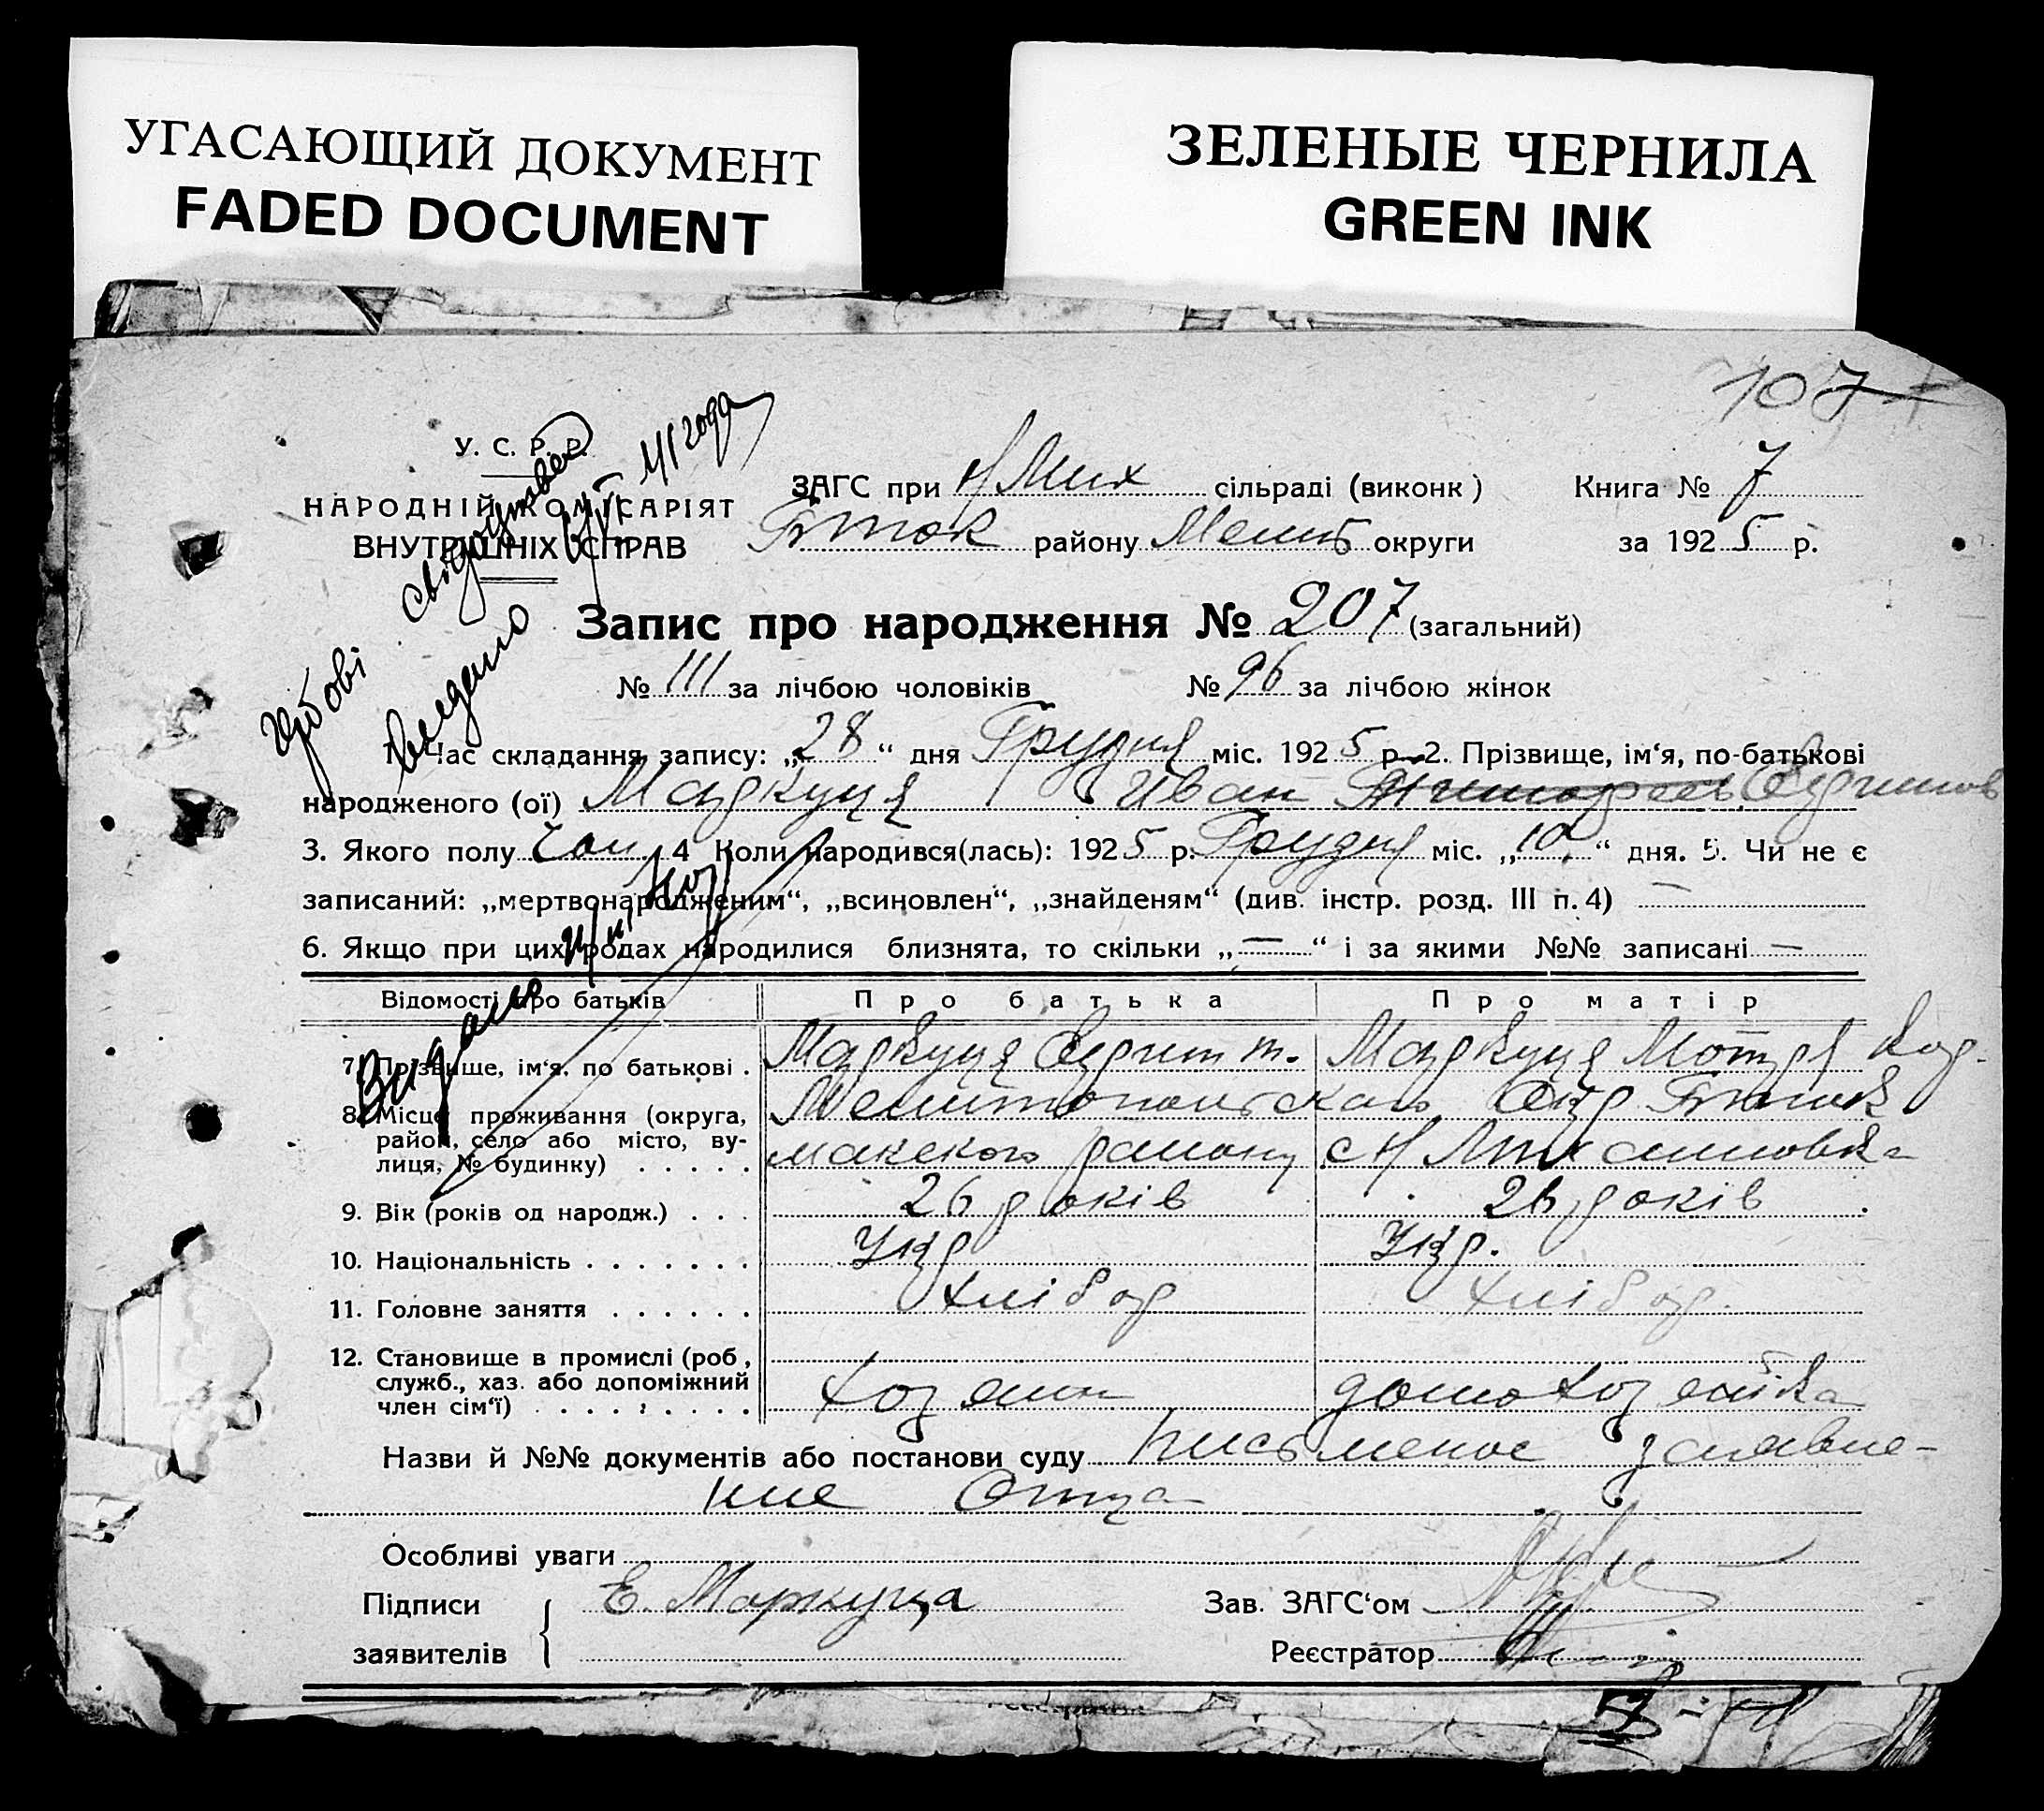 УГАСАЮЩИЙ ДОКУМЕНТ
FADED DOCUMENT
ЗЕЛЕНЫЕ ЧЕРНИЛА
GREEN INK
107
У. С. Р. Р.
НАРОДНІЙ КОМІСАРІЯТ
ВНУТРІШНІХ СПРАВ
ЗАГС при Н Мих сільраді (виконк)
району Меліт округи
Книга № 7
за 1925 р.
Запис про народження № 207 (загальний)
№ 111 за лічбою чоловіків № 96 за лічбою жінок
1. Час складання запису: „28“ дня Грудня міс. 1925 р. 2. Прізвище, ім‘я, по-батькові
народженого (ої) Маркуця Иван
3. Якого полу Чол. 4 Коли народився(лась): 1925 р. Грудня міс. „10“ дня. 5. Чи не є
записаний: „мертвонародженим“, „всиновлен“, „знайденям“ (див. інстр. розд. III п. 4) —
6. Якщо при цих родах народилися близнята, то скільки „—“ і за якими №№ записані —
Відомості про батьків Про батька Про матір
7. Прізвище, ім‘я, по батькові . Маркуця т. Маркуця Мотря
8. Місце проживання (округа, Мелитопольского Окр
район, село або місто, ву- макского району с Н Михайловка
лиця, № будинку) . . . . .
9. Вік (років од народж.) . . . 26 років 26 років
10. Національність . . . . . . . Укр Укр.
11. Головне заняття . . . . . . Хлібор Хлібор.
12. Становище в промислі (роб,
служб., хаз. або допоміжний
член сім‘ї) . . . . . . . . Хозяин домохозяйка
Назви й №№ документів або постанови суду Письменое заявле-
ние Отца
Особливі уваги
Підписи Е. Маркуца Зав. ЗАГС‘ом
заявителів Реєстратор